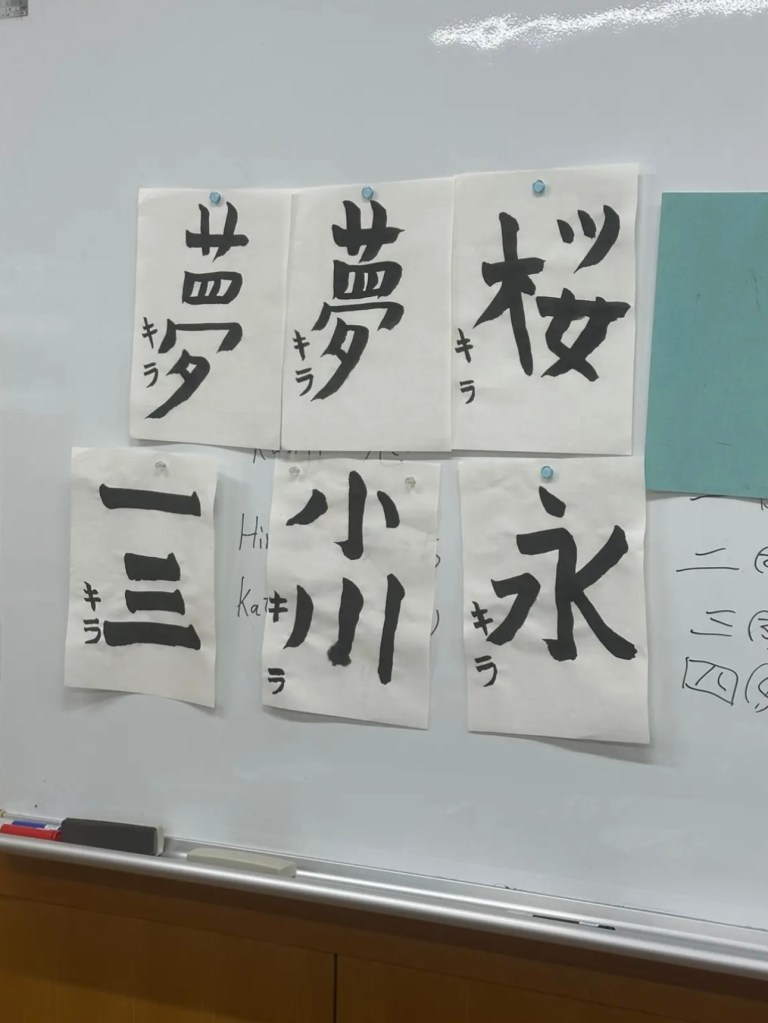 夢
キラ
夢
キラ
桜
キラ
一
三
キラ
小
川
キラ
永
キラ
二
三
四